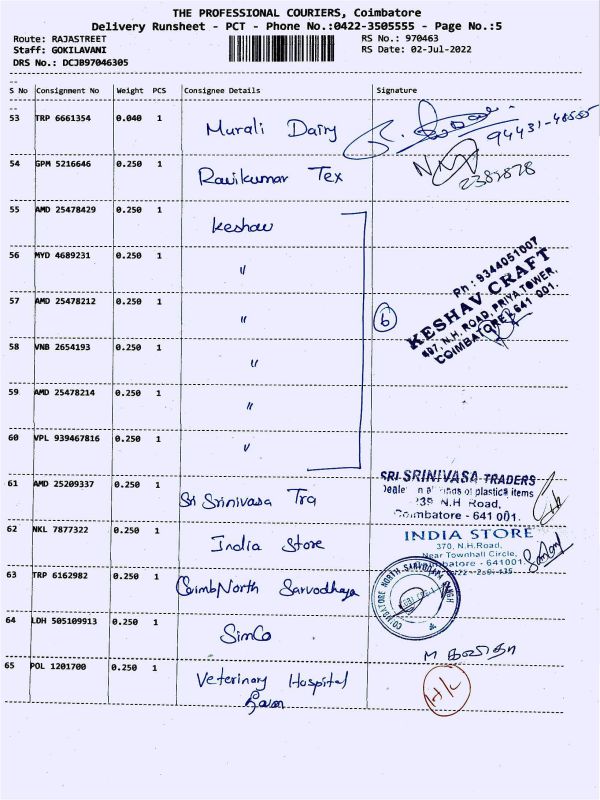 THE PROFESSIONAL COURIERS, Coimbatore
Delivery Runsheet - PCT - Phone No.:0422-3505555 - Page No.:5
Route: RAJASTREET RS No.: 970463
Staff: GOKILAVANI RS Date: 02-Jul-2022
DRS No.: DCJB97046305
S No Consignment No Weight PCS Consignee Details Signature
53 TRP 6661354 0.040 1 Murali Dairy
94431-40505
54 GPM 5216646 0.250 1 Ravikumar Tex
2382828
55 AMD 25478429 0.250 1 Keshav
56 MYD 4689231 0.250 1 "
57 AMD 25478212 0.250 1 " 6
Ph : 9344051007
KESHAV CRAFT
407, N.H. ROAD, PRIYA TOWER,
COIMBATORE 641 001.
58 VNB 2654193 0.250 1 "
59 AMD 25478214 0.250 1 "
60 VPL 939467816 0.250 1 "
61 AMD 25209337 0.250 1 Sri Srinivasa Tra
SRI SRINIVASA TRADERS
of plastica items
139 N.H Road,
Coimbatore - 641 001.
62 NKL 7877322 0.250 1 India Store
INDIA STORE
370, N.H.Road,
Near Townhall Circle,
Coimbatore - 641001.
63 TRP 6162982 0.250 1 CoimbNorth Sarvodhaya
COIMBATORE NORTH SARVODAYA SANGH
64 LDH 505109913 0.250 1 SimCo
M கவிதா
65 POL 1201700 0.250 1 Veterinary Hospital
H/L